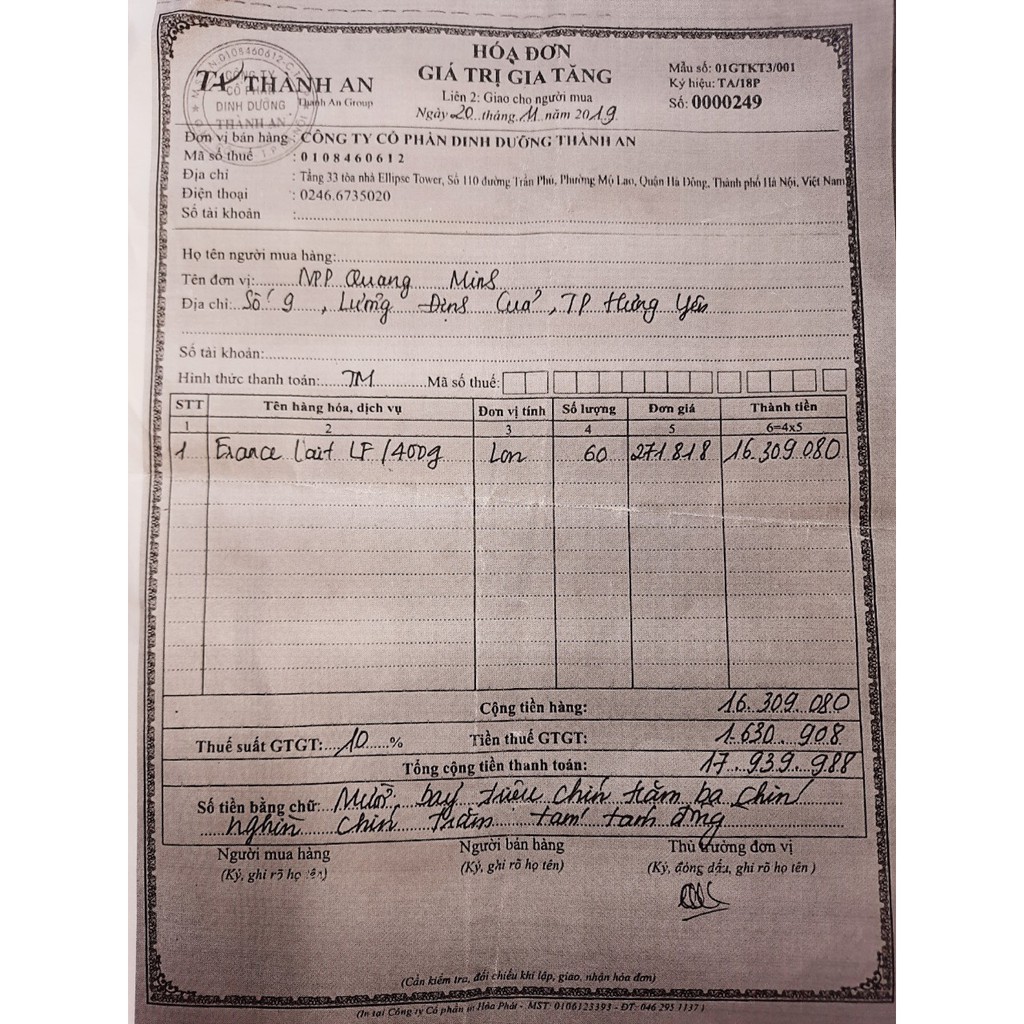 HÓA ĐƠN
GIÁ TRỊ GIA TĂNG
Liên 2: Giao cho người mua
Ngày 20 tháng 11 năm 2019
Mẫu số: 01GTKT3/001
Ký hiệu: TA/18P
Số: 0000249
TA THÀNH AN
Thanh An Group
CÔNG TY
CỔ PHẦN
DINH DƯỠNG
THÀNH AN
Đơn vị bán hàng : CÔNG TY CỔ PHẦN DINH DƯỠNG THÀNH AN
Mã số thuế : 0108460612
Địa chỉ : Tầng 33 tòa nhà Ellipse Tower, Số 110 đường Trần Phú, Phường Mộ Lao, Quận Hà Đông, Thành phố Hà Nội, Việt Nam
Điện thoại : 0246.6735020
Số tài khoản :
Họ tên người mua hàng:
Tên đơn vị: NPP Quang Minh
Địa chỉ: Số 9, Lương Định Của, TP Hưng Yên
Số tài khoản:
Hình thức thanh toán: TM Mã số thuế:
STT Tên hàng hóa, dịch vụ Đơn vị tính Số lượng Đơn giá Thành tiền
1 2 3 4 5 6=4x5
1 France Lait LF/400g Lon 60 271818 16.309.080
Cộng tiền hàng: 16.309.080
Thuế suất GTGT: 10 % Tiền thuế GTGT: 1.630.908
Tổng cộng tiền thanh toán: 17.939.988
Số tiền bằng chữ: Mười bảy triệu chín trăm ba chín
nghìn chín trăm tám tám đồng
Người mua hàng Người bán hàng Thủ trưởng đơn vị
(Ký, ghi rõ họ tên) (Ký, ghi rõ họ tên) (Ký, đóng dấu, ghi rõ họ tên)
(Cần kiểm tra, đối chiếu khi lập, giao, nhận hóa đơn)
(In tại Công ty Cổ phần in Hòa Phát - MST: 0106123393 - ĐT: 046 295 1137)